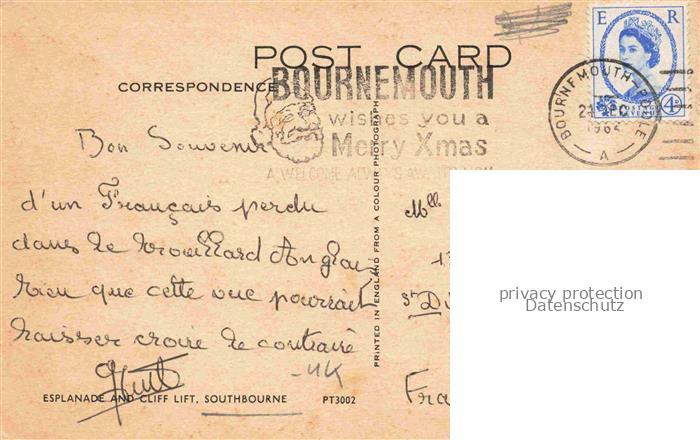 POST CARD
E R
CORRESPONDENCE
BOURNEMOUTH
wishes you a
Merry Xmas
A WELCOME ALWAYS AWAITS YOU
BOURNEMOUTH-POOLE
DEC
1964
A
4D
Bon Souvenir
d'un Français perdu
dans le brouillard Anglais
bien que cette vue pourrait
laisser croire le contraire
Mlle
St Di
Fra
UK
PRINTED IN ENGLAND FROM A COLOUR PHOTOGRAPH
ESPLANADE AND CLIFF LIFT, SOUTHBOURNE PT3002
privacy protection
Datenschutz